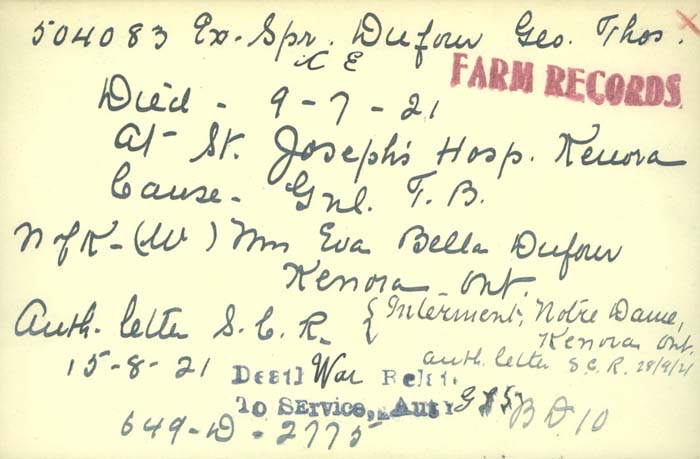 504083 Ex-Spr. Dufour Geo. Thos. X
C E
FARM RECORDS
Died - 9-7-21
At St. Joseph's Hosp. Kenora
Cause - Gnl. T. B.
N of K - (W) Mrs Eva Bella Dufour
Kenora Ont.
Auth. letter S. C. R.
15-8-21
{Interment, Notre Dame,
Kenora Ont.
auth. letter S.C.R. 28/9/21
Death War Relat
To Service, Auty
B D 10
649-D-2775